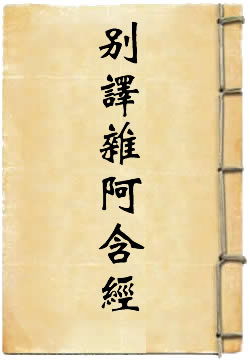 别譯雜阿含經